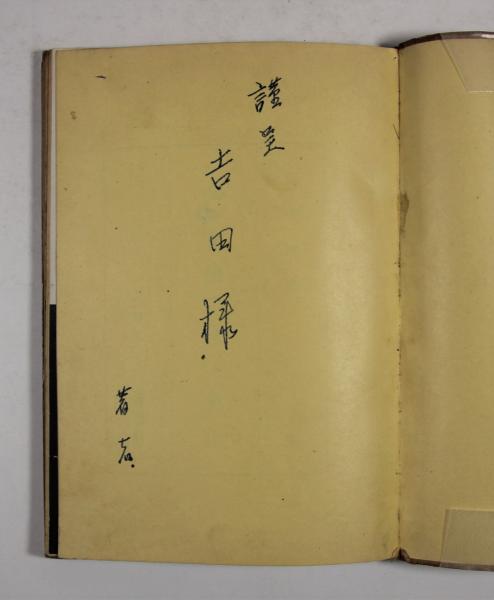 謹呈
吉田様
著者